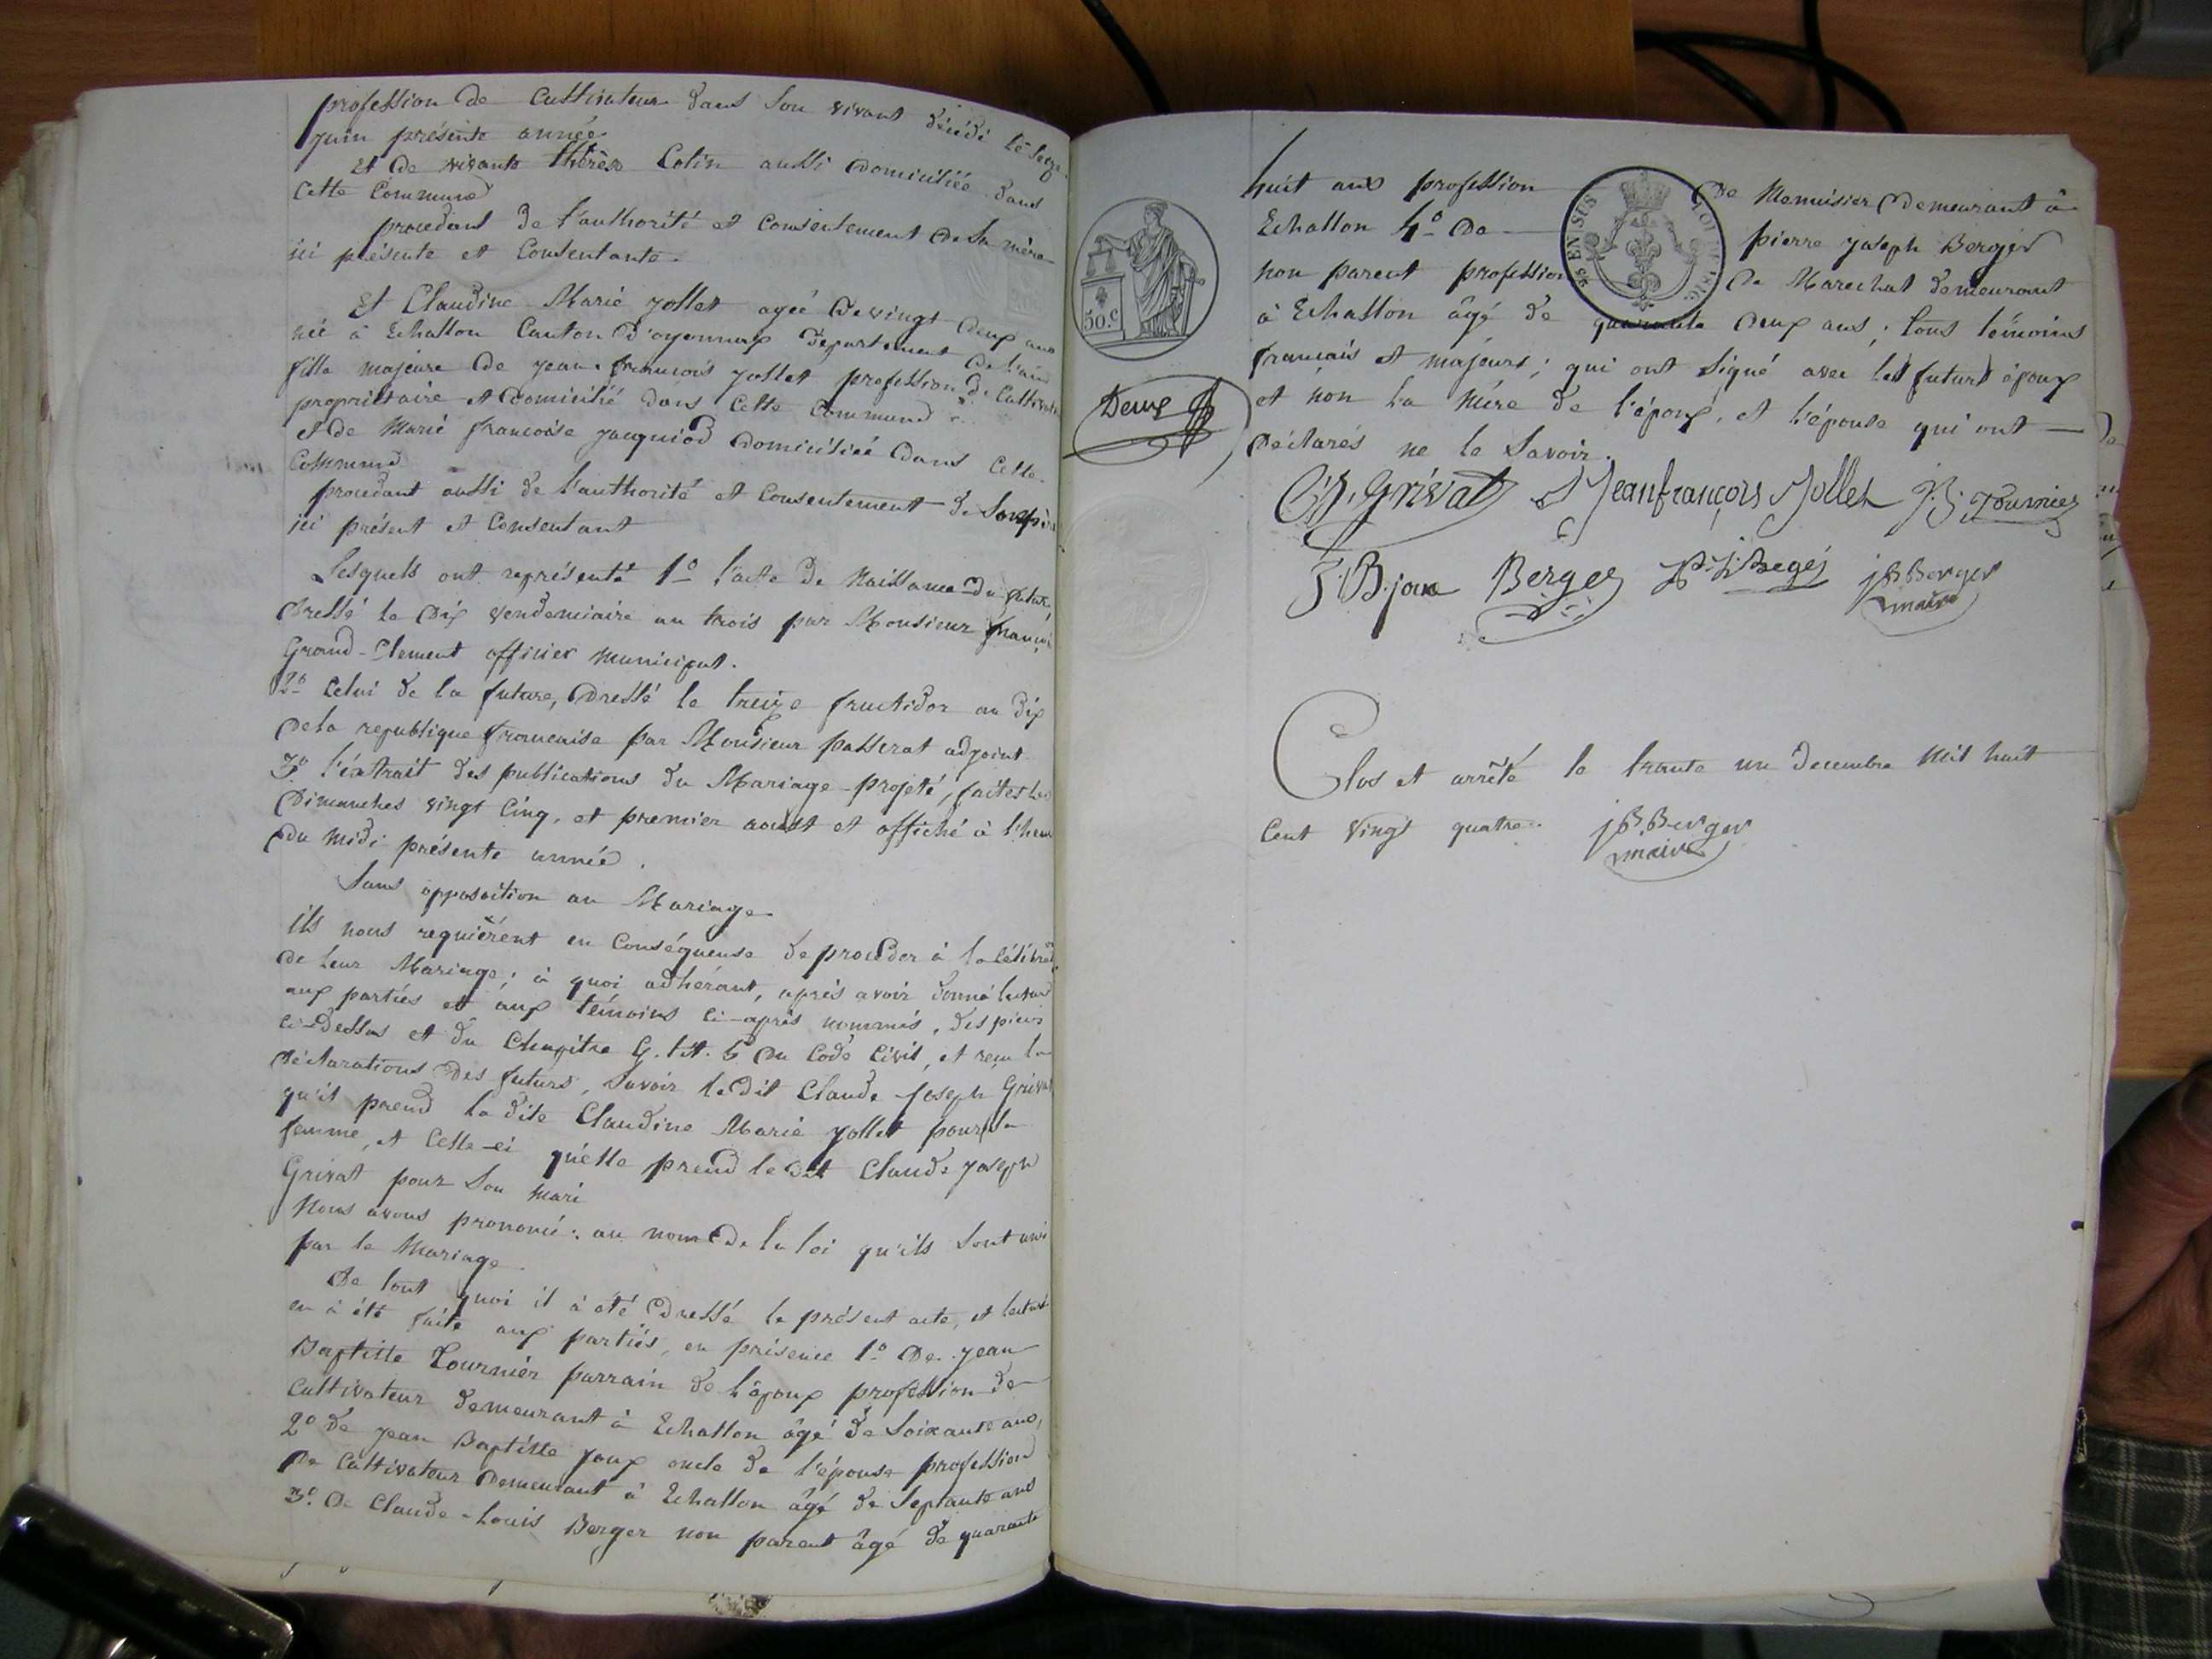 profession de Cultivateur dans son vivant décédé le seize
juin présente année
Et de vivante thérèse Colin aussi domiciliée dans
cette Commune
procedant de l'authorité et Consentement de Sa mère
ici présente et Consentante.
Et Claudine Marie jollet agée de vingt deux ans
née à Echallon Canton d'oyonnax département de l'ain
fille majeure de jean-francois jollet profession de Cultivateur
propriétaire et domicilié dans cette Commune
et de Marie francoise jacquiod domiciliée dans cette
Commune
procedant aussi de l'authorité et Consentement de Son père
ici présent et Consentant
Lesquels ont représenté 1º l'acte de Naissance du futur,
dressé le dix vendemiaire an trois par Monsieur françois
Grand-Clement officier municipal.
2º Celui de la future, dressé le treize fructidor an dix
de la republique francaise par Monsieur passerat adjoint
3º l'éxtrait des publications du Mariage projeté, faites les
dimanches vingt Cinq, et premier aoust et affiché à l'heure
du midi présente année.
Sans opposoition au Mariage
ils nous requièrent en Conséquense de proceder à la célébraon
de leur Mariage; à quoi adhérant, après avoir donné lecture
aux partiés et aux témoins ci-après nommés, des pieces
ci-dessus et du Chapitre 6. tit. 5 du Code Civil, et reçu la
déclarations des futurs, Savoir le dit Claude joseph Grivat
qu'il prend la dite Claudine Marie jollet pour sa
femme, et Celle-ci qu'elle prend le dit Claude joseph
Grivat pour Son mari
Nous avons prononcé: au nom de la loi qu'ils sont unis
par le Mariage
De tout quoi il à été dressé le présent acte, et lecture
en à été faite aux partiés, en présence 1º De jean
Baptiste Tournier parrain de l'époux profession de
Cultivateur demeurant à Echallon âgé de Soixante ans,
2º de jean Baptiste joux oncle de l'épouse profession
De Cultivateur Demeurant à Echallon âgé de Septante ans
3º. De Claude-Louis Berger non parent âgé de quarante
50.c
Deux
huit ans profession de Menuisier demeurant à
EN SUS
Echallon 4º De pierre joseph Berger
non parent profession De Marechal demeurant
à Echallon âgé de quarante deux ans; tous témoins
francais et majeurs; qui ont Signé avec les futurs époux
et non la Mère de l'époux, et l'épouse qui ont
déclarés ne le Savoir.
C.J. Grivat Jean françois Jollet J.B. Tournier
J.B. joux Berger P.J. Beger j B Berger
maire
Clos et arrêté le trante un decembre mil huit
Cent vingt quatre. j B. Berger
maire